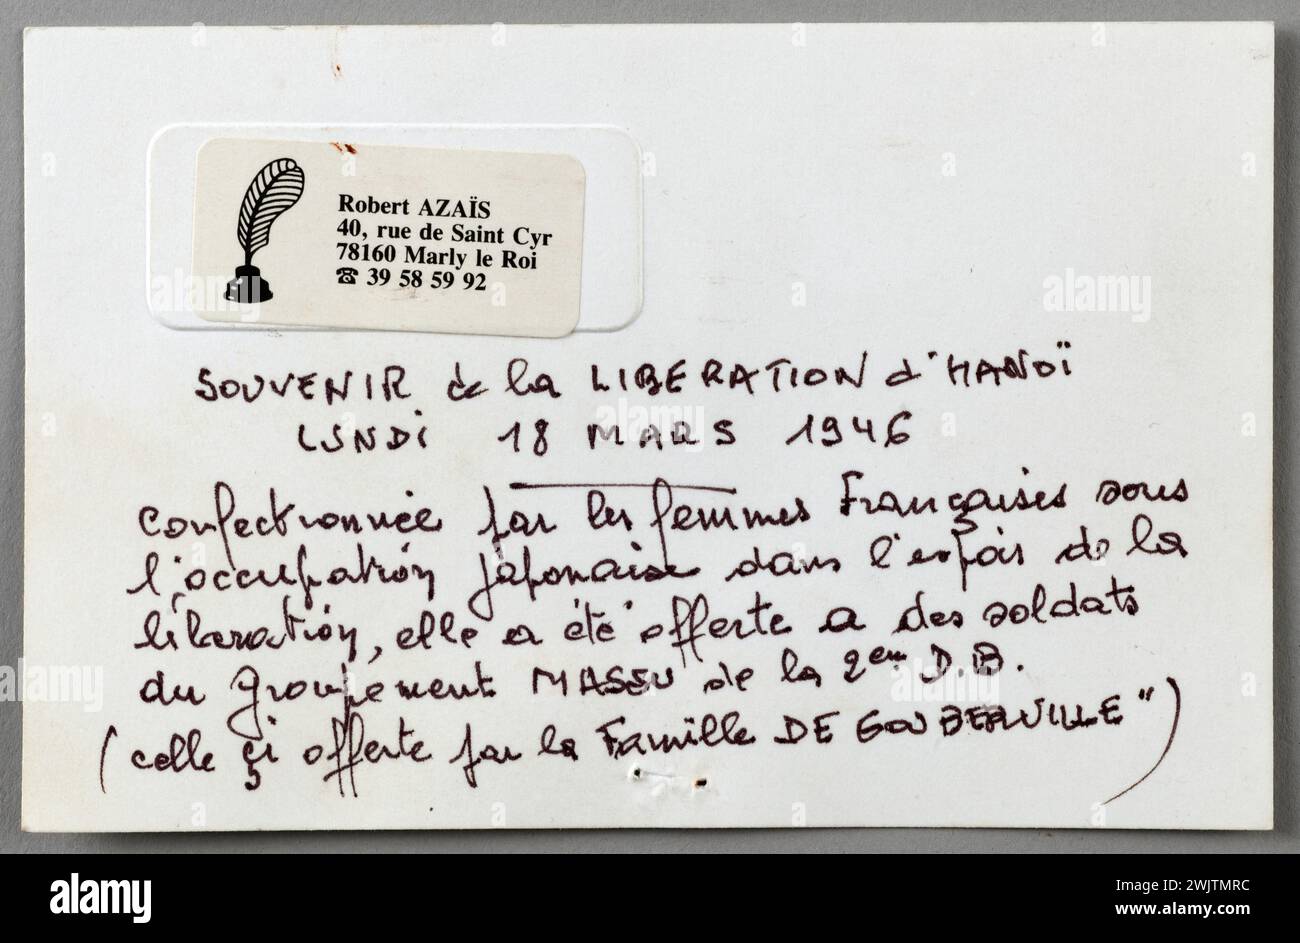 Robert AZAÏS
40, rue de Saint Cyr
78160 Marly le Roi
☎ 39 58 59 92
SOUVENIR de la LIBERATION d'HANOÏ
LUNDI 18 MARS 1946
confectionnée par les femmes Françaises sous
l'occupation japonaise dans l'espoir de la
libération, elle a été offerte a des soldats
du groupement MASSU de la 2em D.B.
(celle çi offerte par la Famille DE GOUBERVILLE")
alamy
alamy
Image ID: 2WJTMRC
www.alamy.com